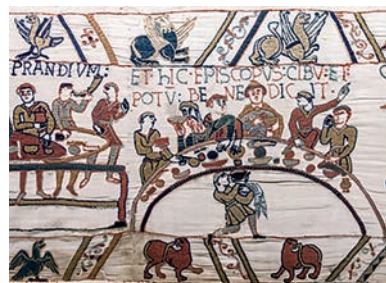 PRANDIUM:
ET·hIC·EPISCOPUS:CIBU:ET:
POTU: BE NE DIC IT·